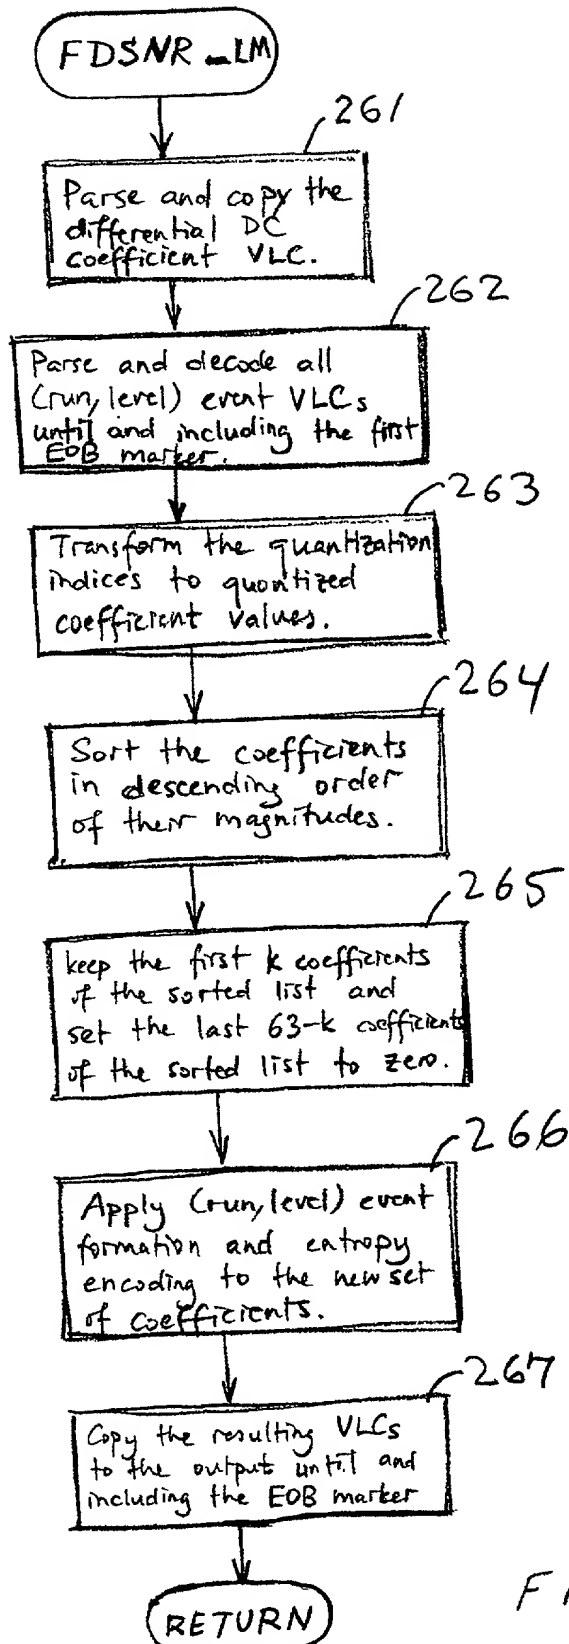 FDSNR_LM
261
Parse and copy the
differential DC
coefficient VLC.
262
Parse and decode all
(run, level) event VLCs
until and including the first
EOB marker.
263
Transform the quantization
indices to quantized
coefficient values.
264
Sort the coefficients
in descending order
of their magnitudes.
265
keep the first k coefficients
of the sorted list and
set the last 63-k coefficients
of the sorted list to zero.
266
Apply (run, level) event
formation and entropy
encoding to the new set
of coefficients.
267
Copy the resulting VLCs
to the output until and
including the EOB marker
RETURN